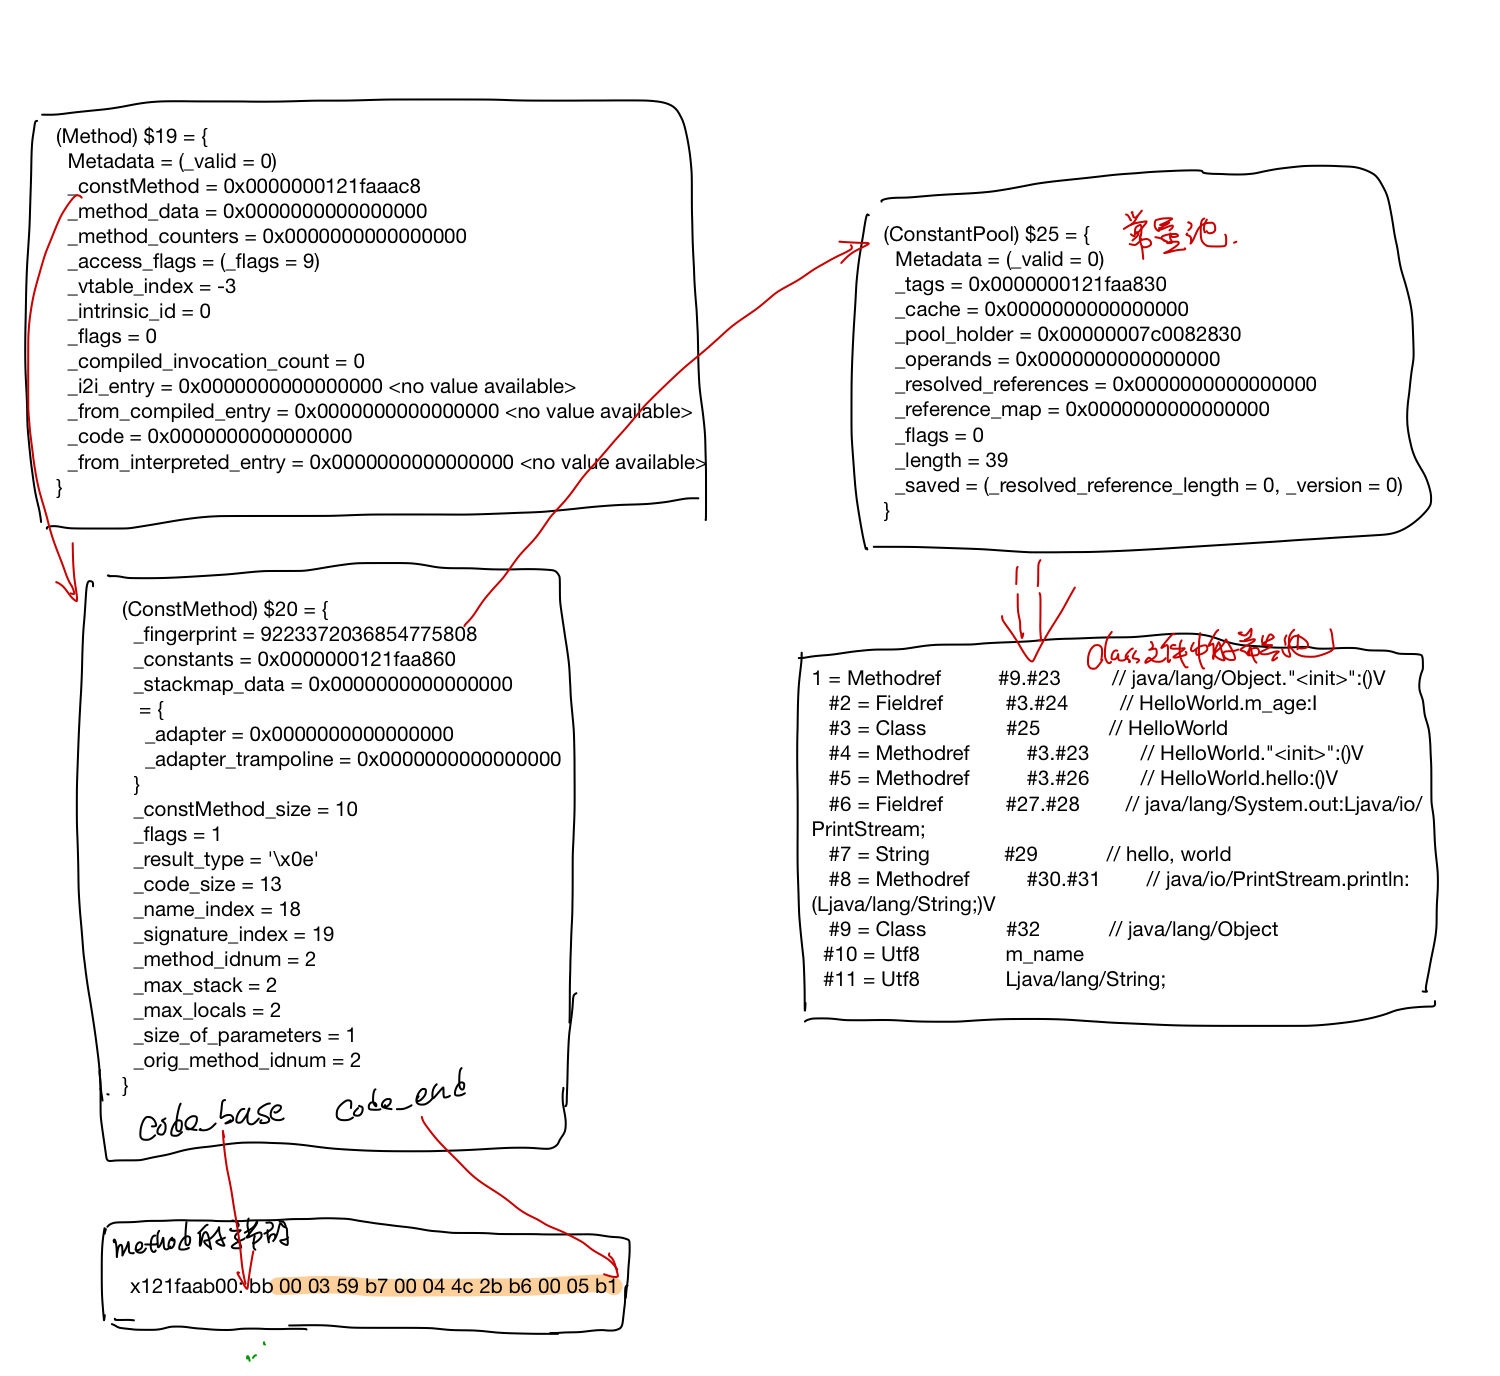 (Method) $19 = {
Metadata = (_valid = 0)
_constMethod = 0x0000000121faaac8
_method_data = 0x0000000000000000
_method_counters = 0x0000000000000000
_access_flags = (_flags = 9)
_vtable_index = -3
_intrinsic_id = 0
_flags = 0
_compiled_invocation_count = 0
_i2i_entry = 0x0000000000000000 <no value available>
_from_compiled_entry = 0x0000000000000000 <no value available>
_code = 0x0000000000000000
_from_interpreted_entry = 0x0000000000000000 <no value available>
}
(ConstMethod) $20 = {
_fingerprint = 9223372036854775808
_constants = 0x0000000121faa860
_stackmap_data = 0x0000000000000000
= {
_adapter = 0x0000000000000000
_adapter_trampoline = 0x0000000000000000
}
_constMethod_size = 10
_flags = 1
_result_type = '\x0e'
_code_size = 13
_name_index = 18
_signature_index = 19
_method_idnum = 2
_max_stack = 2
_max_locals = 2
_size_of_parameters = 1
_orig_method_idnum = 2
}
code_base code_end
method的字节码
x121faab00: bb 00 03 59 b7 00 04 4c 2b b6 00 05 b1
(ConstantPool) $25 = { 常量池.
Metadata = (_valid = 0)
_tags = 0x0000000121faa830
_cache = 0x0000000000000000
_pool_holder = 0x00000007c0082830
_operands = 0x0000000000000000
_resolved_references = 0x0000000000000000
_reference_map = 0x0000000000000000
_flags = 0
_length = 39
_saved = (_resolved_reference_length = 0, _version = 0)
}
Class文件中的常量池
1 = Methodref #9.#23 // java/lang/Object."<init>":()V
#2 = Fieldref #3.#24 // HelloWorld.m_age:I
#3 = Class #25 // HelloWorld
#4 = Methodref #3.#23 // HelloWorld."<init>":()V
#5 = Methodref #3.#26 // HelloWorld.hello:()V
#6 = Fieldref #27.#28 // java/lang/System.out:Ljava/io/
PrintStream;
#7 = String #29 // hello, world
#8 = Methodref #30.#31 // java/io/PrintStream.println:
(Ljava/lang/String;)V
#9 = Class #32 // java/lang/Object
#10 = Utf8 m_name
#11 = Utf8 Ljava/lang/String;